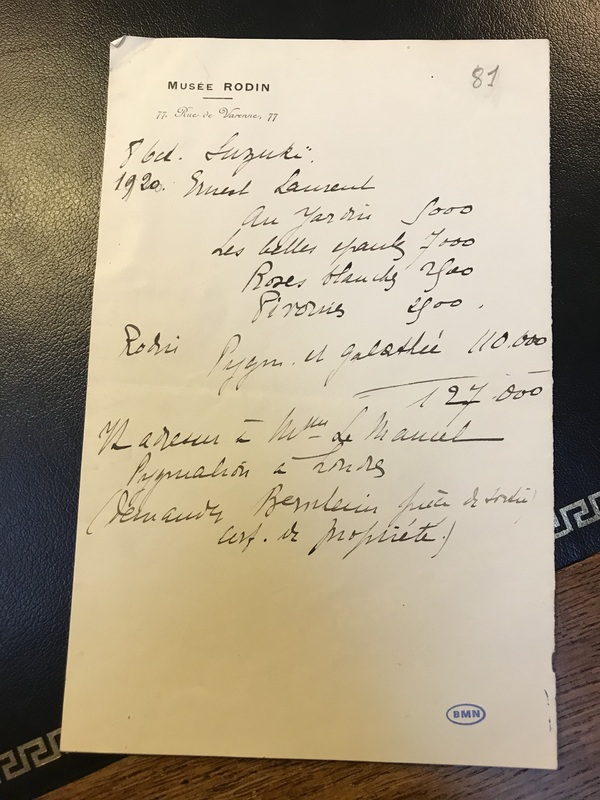 81
MUSÉE RODIN
77, Rue de Varenne, 77
8 bct. Suzuki.
1920. Ernest Laurent
Au Jardin 5000
Les belles epaules 7000
Roses blanches 2500
Pivoines 2500.
Rodin Pygm. et galathée 110.000
127.000
à Mme Le Marcel
Pygmalion à Londres
(demander Bernheim de sortie,
cert. de propriété.)
BMN